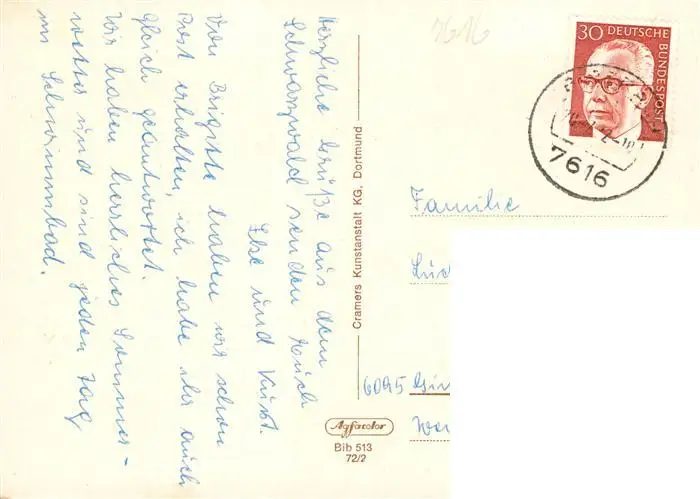 Herzliche Grüße aus dem
Schwarzwald senden Euch
Else und Kurt.
Von Brigitte haben wir schon
Post erhalten, ich habe ihr auch
gleich geantwortet.
Wir haben herrliches Sommer-
wetter und sind jeden Tag
im Schwimmbad.
Cramers Kunstanstalt KG. Dortmund
Agfacolor
Bib 513
72/2
7616
30 DEUTSCHE
BUNDESPOST
7616
Familie
6095